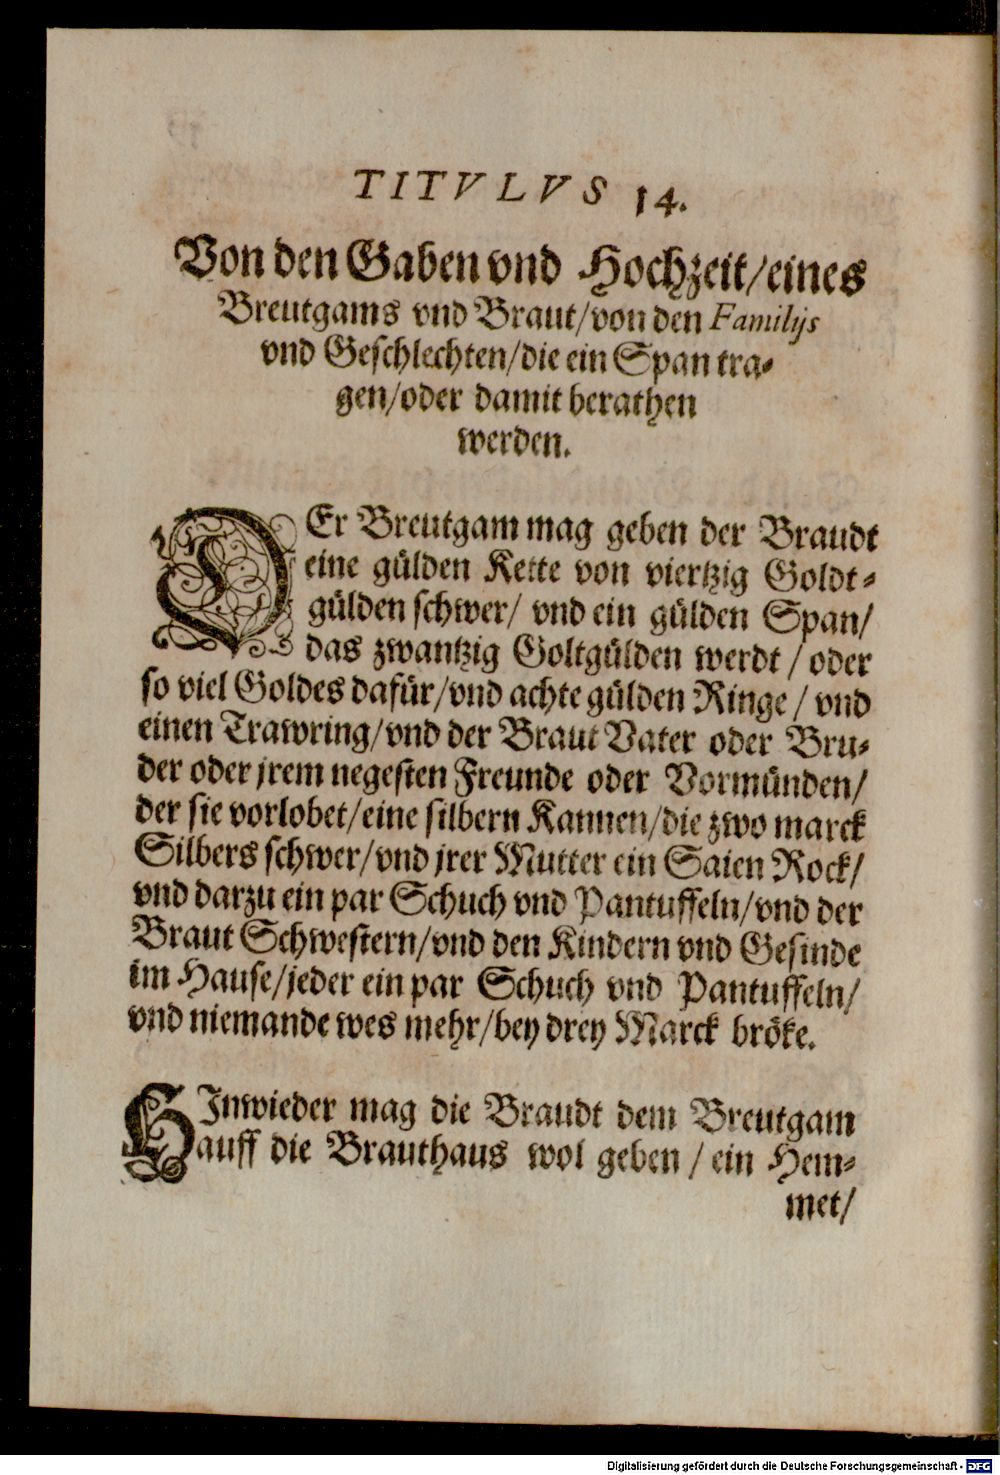 TITVLVS 14.
Von den Gaben vnd Hochzeit/eines
Breutgams vnd Braut/von den Familijs
vnd Geschlechten/die ein Span tra-
gen/oder damit berathen
werden.
DEr Breutgam mag geben der Braudt
eine gülden Kette von viertzig Goldt-
gülden schwer/ vnd ein gülden Span/
das zwantzig Goltgülden werdt / oder
so viel Goldes dafür/vnd achte gülden Ringe / vnd
einen Trawring/vnd der Braut Vater oder Bru-
der oder jrem negesten Freunde oder Vormünden/
der sie vorlobet/eine silbern Kannen/die zwo marck
Silbers schwer/vnd jrer Mutter ein Saien Rock/
vnd darzu ein par Schuch vnd Pantuffeln/vnd der
Braut Schwestern/vnd den Kindern vnd Gesinde
im Hause/jeder ein par Schuch vnd Pantuffeln/
vnd niemande wes mehr/bey drey Marck bröke.
HInwieder mag die Braudt dem Breutgam
auff die Brauthaus wol geben / ein Hem-
met/
Digitalisierung gefördert durch die Deutsche Forschungsgemeinschaft - DFG